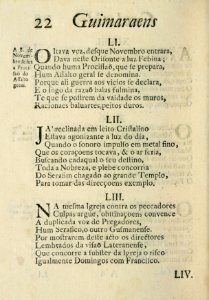 22 Guimaraens
LI.
A 8. de
Novem-
bro
a Procis-
saõ do
Assalto
geral.
Oitava vez, desque Novembro entrara,
Dava neste Orisonte a luz Febina;
Quando huma Procissaõ, que se prepara,
Hum Assalto geral se denomina.
Porque ali guarra aos vicios se declara,
E o fogo da razaõ balas fulmina,
Té que se postrem da vaidade os muros,
Racionaes baluartes, peitos duros.
LII.
Já reclinada em leito Cristalino
Estava agonizante a luz do dia,
Quando o sonoro impulso em metal fino,
Que os coraçoens tocava, & o ar feria,
Buscando cadaqual o seu destino,
Toda a Nobreza, e plebe concorria
Do Serafim chagado ao grande Templo,
Para tomar das direcçoens exemplo.
LIII.
Na mesma Igreja contra os peccadores
Culpas argue, obstinaçoens convence
A duplicada voz de Pregadores,
Hum Serafico, o outro Gusmanense.
Por mostrarem deste acto os directores
Lembrados da visaõ Lateranense,
Que concorre a subster da Igreja o risco
Igualmente Domingos com Francisco.
LIV.